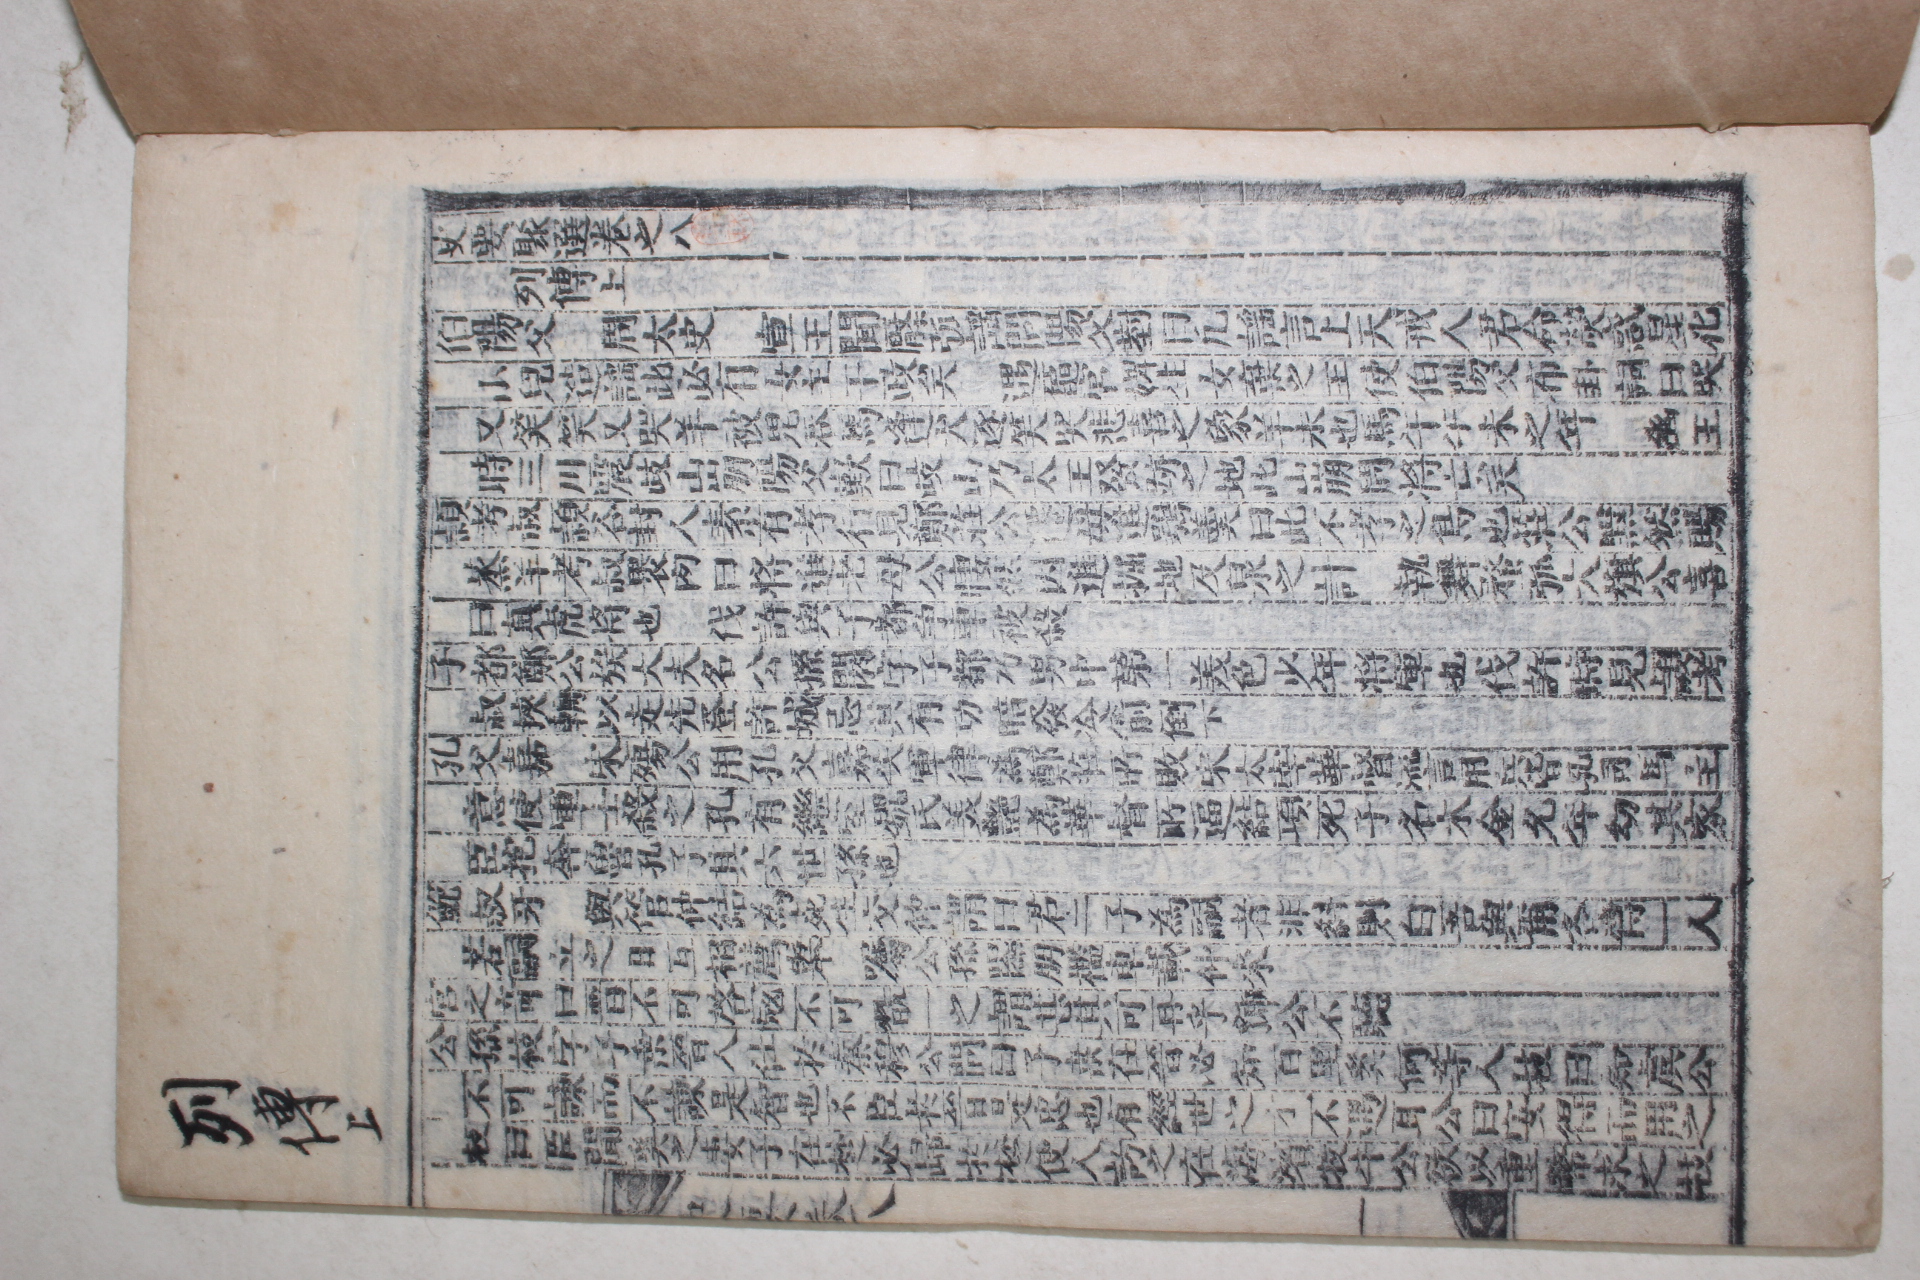 列傳上
史要聚選卷之八
列傳上
伯陽父 周太史 宣王聞檿弧謠問陽父對曰凡謠言上天戒人君命熒惑星化
小兒造謠此必有女主干政矣 遇龜宮婢生女棄之王使伯陽父布卦詞曰哭
又笑笑又哭羊被鬼吞馬逢犬逐笑哭悲喜之象羊未也馬午午未之年 幽王
時三川震岐山崩陽父歎曰岐山乃太王發跡之地此山崩周將亡矣
頴考叔頴谷封人素有孝行見鄭莊公遷母進鴞羹曰此不孝之鳥也莊公默然賜
蒸羊考叔褁肉曰將進老母公悽然因進掘地及泉之計 執舞螯弧大旗公喜
曰眞虎將也 伐許與子都爭車被殺
子都鄭公族大夫名公孫閼字子都乃男中第一美色少年將軍也伐許時見頴考
叔挾輈以走先登許城忌其有功暗發冷箭倒下
孔父嘉 宋殤公用孔父嘉矣軍律爲鄭莊所敗宋太宰華督流言用兵皆孔司馬主
意使軍士殺之孔有繼室魏氏美艶爲華督所逼結項死子名木金允年幼其家
臣抱奔魯孔子其六世孫也
鮑叔牙 與管仲結爲死生交仲謂曰君二子爲嗣者非糾則白吾與爾各傅一人
若嗣立之日互相薦擧 囑公孫隰朋檻車載仲來
宮之奇曰晋不可啓冦不可翫一之謂甚其可再乎虢公不聽
公孫枝字子桑晉人仕於秦穆公問曰子桑在晉必知百里奚何等人枝曰知虞公
不可諫而不諫是智也不臣於晉是忠也有經世之才不遇耳公曰安得而用之
枝曰臣聞奚之妻子在楚必歸於楚使人訪之在海濱牧牛公欲以重幣求之枝